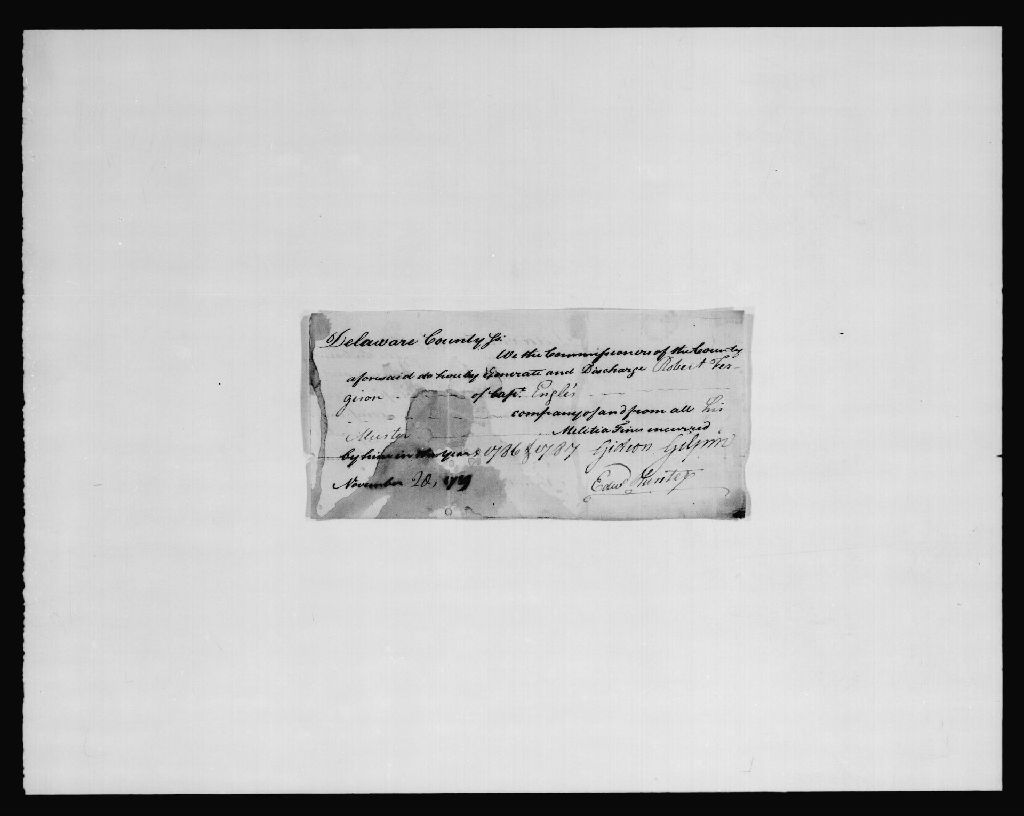 Delaware County Ss.
We the Commissioners of the County
aforesaid do hereby Exonerate and Discharge Robert Fer-
gison of Capt. Engle's
company of and from all his
Muster Melitia Fines incurred
by him in the Years 1786 & 1787 Gideon Gilpin
November 28, Edwd Hunter